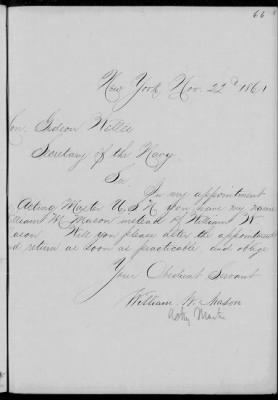 66
New York, Nov. 22d 1861
Hon. Gideon Welles
Secretary of the Navy
Sir
In my appointment
Acting Master U.S.N. you have my name
William H. Mason instead of William W.
Mason. Will you please alter the appointment
and return as soon as practicable, and oblige
Your Obedient Servant
William W. Mason
Actg Master